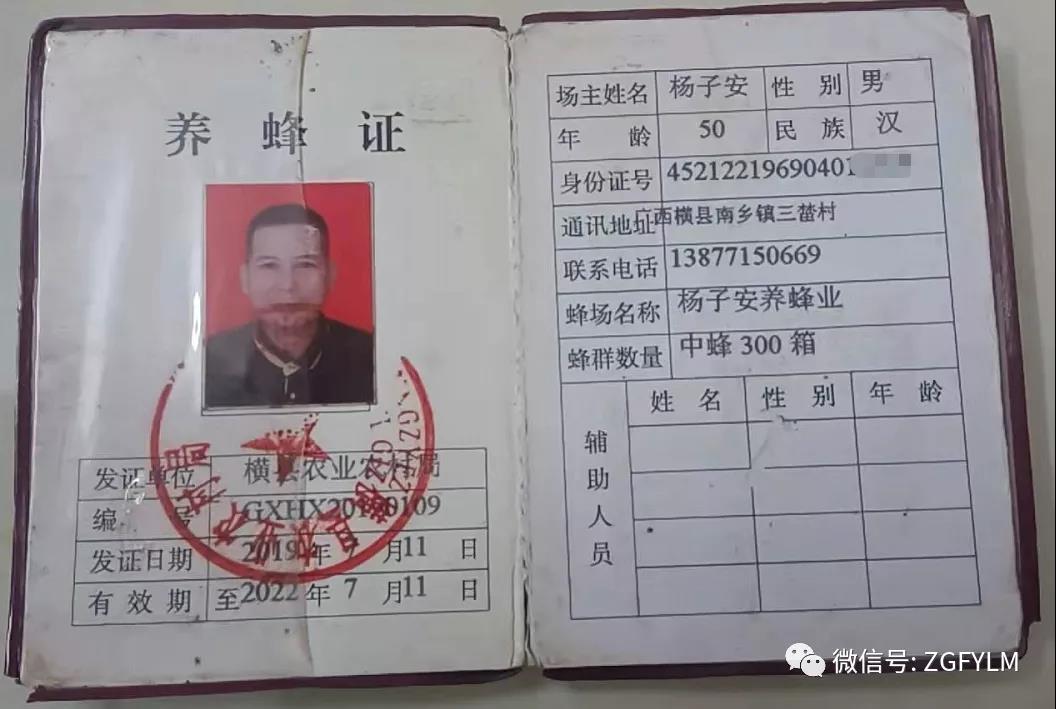 养 蜂 证
发证单位 横县农业农村局
编 号 GXHX20190109
发证日期 2019 年 7 月 11 日
有 效 期 至 2022 年 7 月 11 日
场主姓名 杨子安 性 别 男
年 龄 50 民 族 汉
身份证号 45212219690401
通讯地址 广西横县南乡镇三醔村
联系电话 13877150669
蜂场名称 杨子安养蜂业
蜂群数量 中蜂 300 箱
辅助人员
姓 名 性 别 年 龄
微信号: ZGFYLM